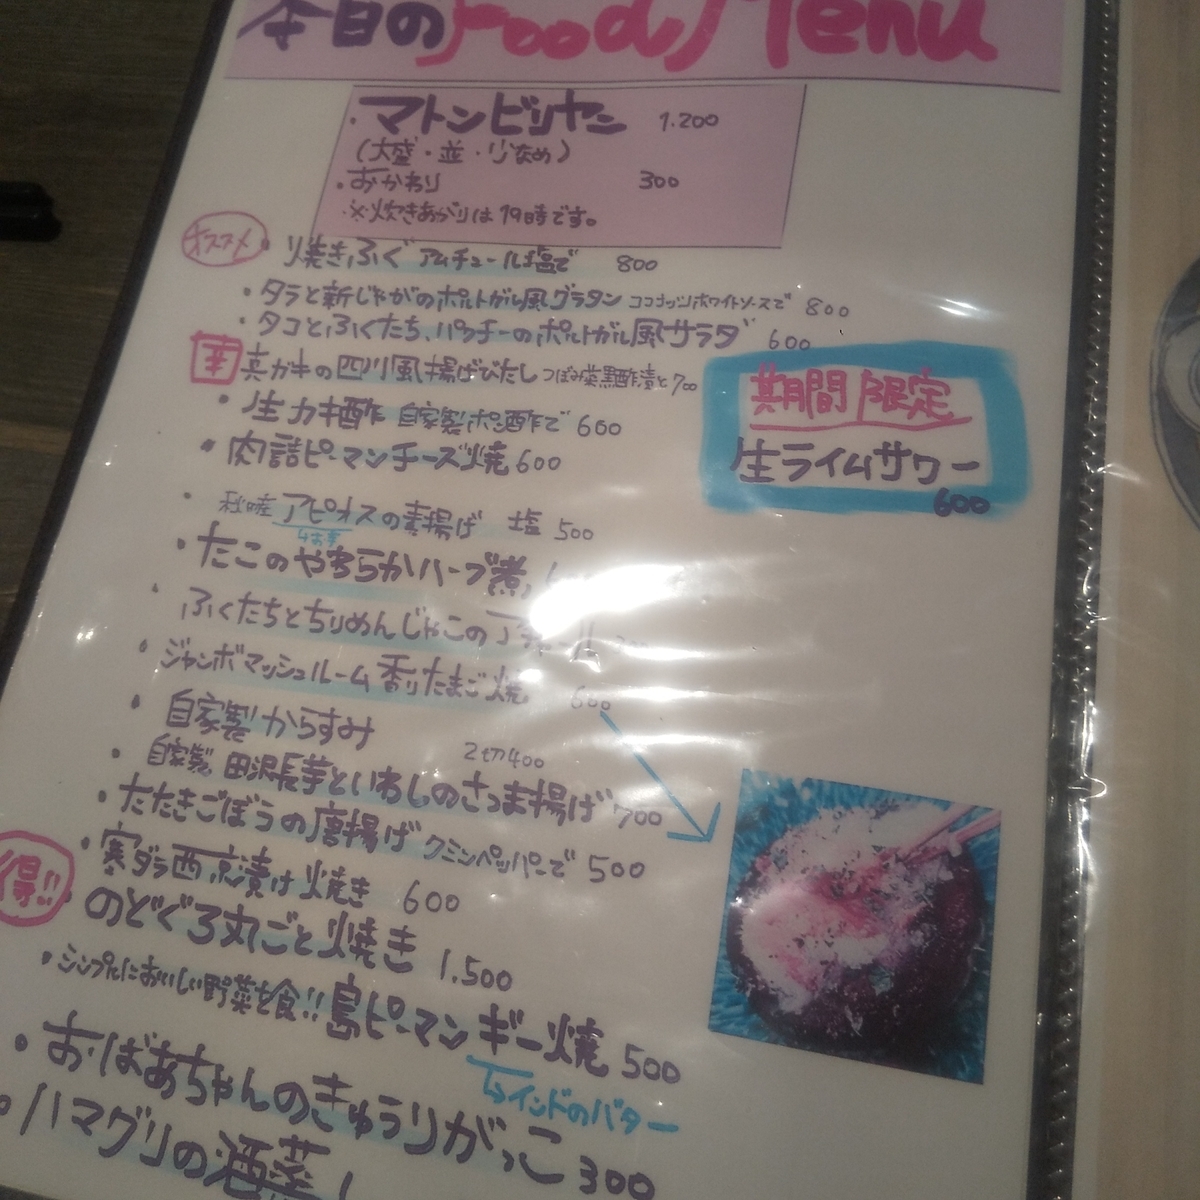 本日のFood Menu
・マトンビリヤニ 1.200
(大盛・並・少なめ)
・おかわり 300
※炊きあがりは19時です。
オススメ ・焼きふぐ アムチュール塩で 800
・タラと新じゃがのポルトガル風グラタン ココナッツホワイトソースで 800
・タコとふくたち、パクチーのポルトガル風サラダ 600
辛 真ガキの四川風揚げびたし つぼみ菜黒酢漬と 700
・生カキ酢 自家製ポン酢で 600
・肉詰ピーマンチーズ焼 600
期間限定
生ライムサワー
600
・秋田産 アピオスの素揚げ 塩 500
↳お芋
・たこのやわらかハーブ煮
・ふくたちとちりめんじゃこの
・ジャンボマッシュルーム 香りたまご焼 600
・自家製からすみ 2切400
・自家製 田沢長芋といわしのさつま揚げ 700
・たたきごぼうの唐揚げ クミンペッパーで 500
・寒ダラ西京漬け焼き 600
得!! のどぐろ丸ごと焼き 1.500
・シンプルにおいしい野菜を食!! 島ピーマンギー焼 500
↳インドのバター
・おばあちゃんのきゅうりがっこ 300
・ハマグリの酒蒸し